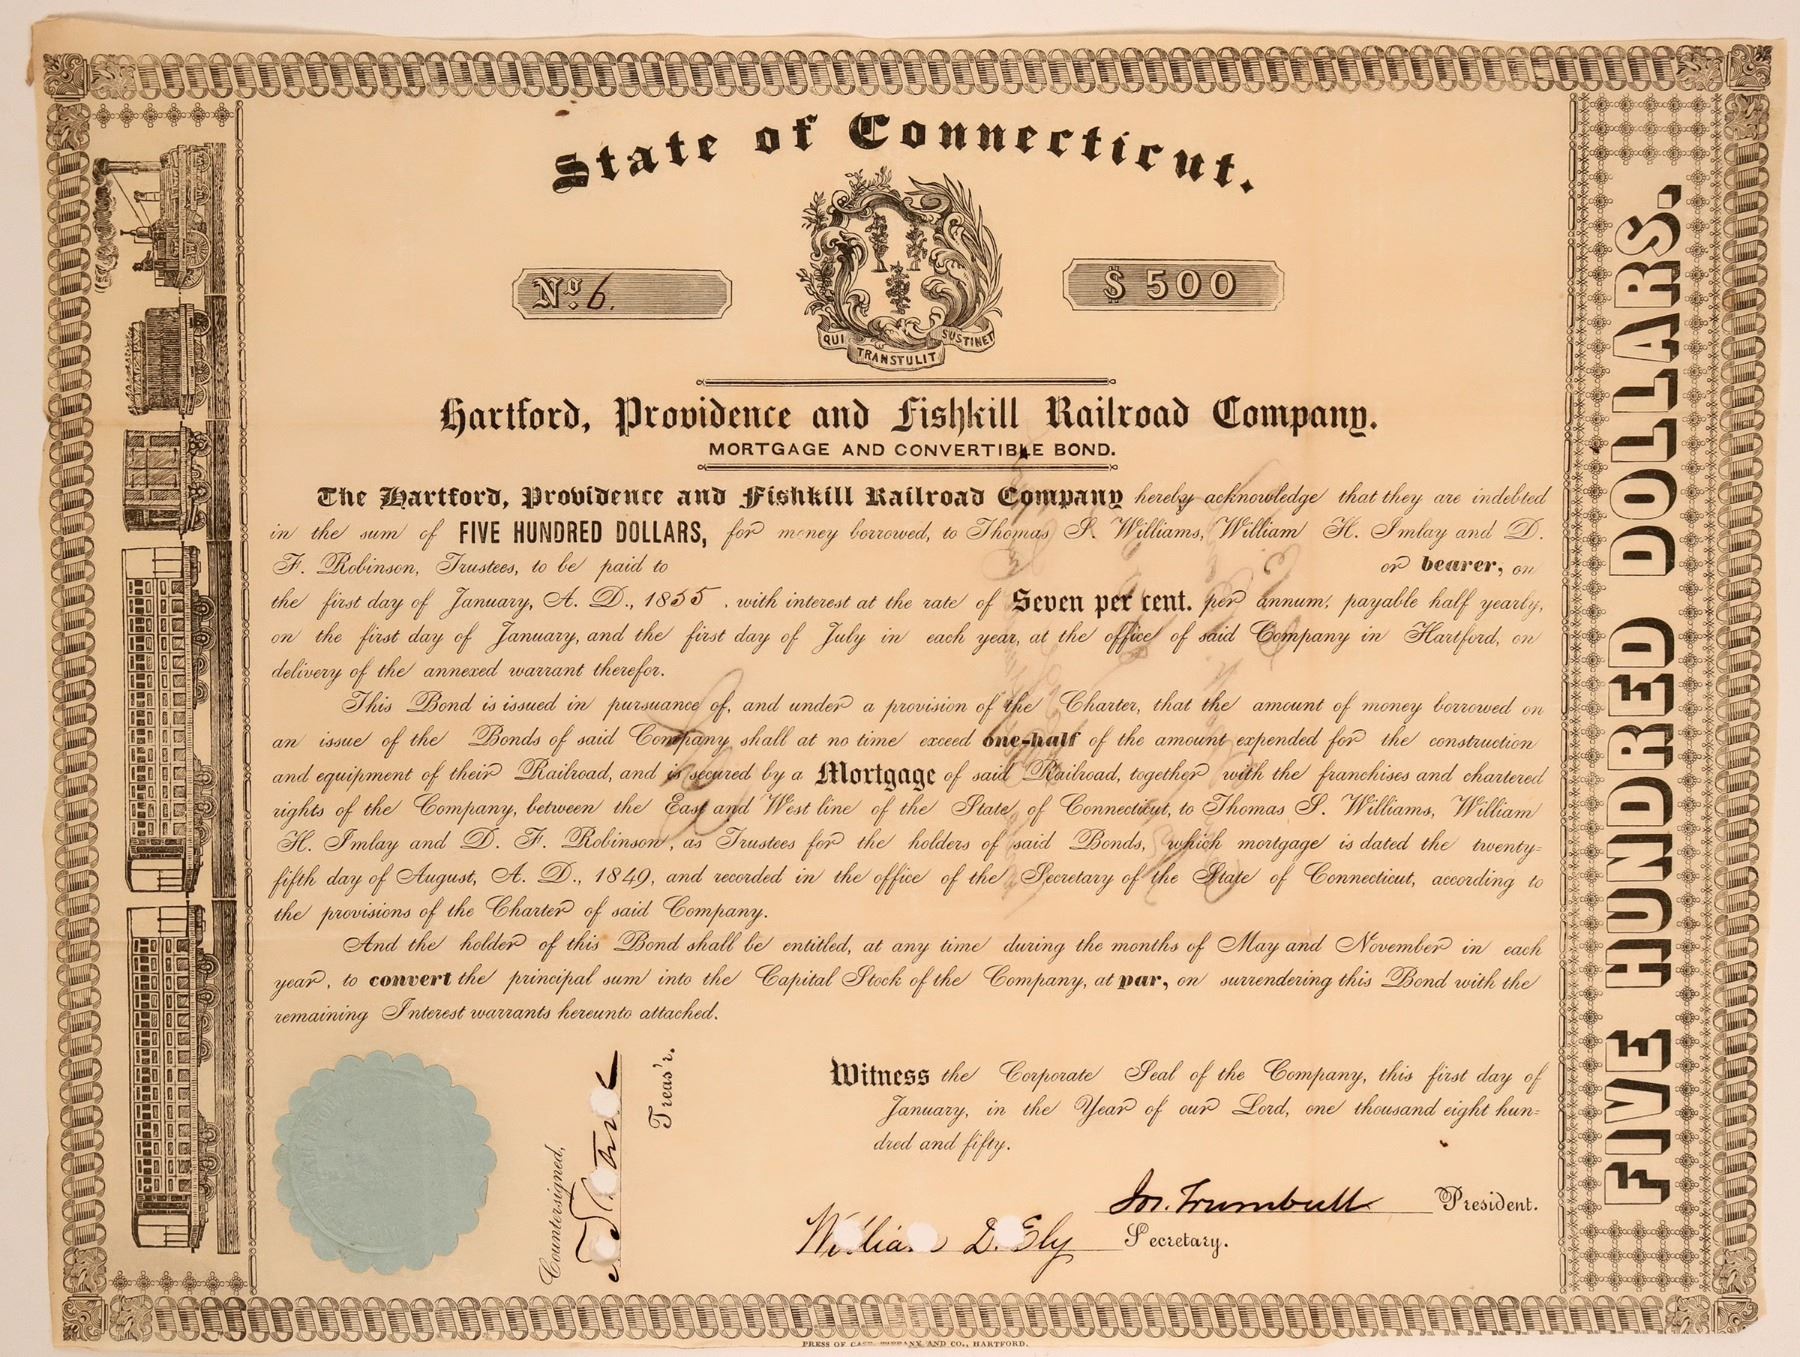 State of Connecticut.
No. 6.
$ 500
QUI TRANSTULIT SUSTINET
Hartford, Providence and Fishkill Railroad Company.
MORTGAGE AND CONVERTIBLE BOND.
The Hartford, Providence and Fishkill Railroad Company hereby acknowledge that they are indebted
in the sum of FIVE HUNDRED DOLLARS, for money borrowed, to Thomas S. Williams, William H. Imlay and D.
F. Robinson, Trustees, to be paid to or bearer, on
the first day of January, A. D., 1855, with interest at the rate of Seven per cent. per annum, payable half yearly,
on the first day of January, and the first day of July in each year, at the office of said Company in Hartford, on
delivery of the annexed warrant therefor.
This Bond is issued in pursuance of, and under a provision of the Charter, that the amount of money borrowed on
an issue of the Bonds of said Company shall at no time exceed one-half of the amount expended for the construction
and equipment of their Railroad, and is secured by a Mortgage of said Railroad, together with the franchises and chartered
rights of the Company, between the East and West line of the State of Connecticut, to Thomas S. Williams, William
H. Imlay and D. F. Robinson, as Trustees for the holders of said Bonds, which mortgage is dated the twenty-
fifth day of August, A. D., 1849, and recorded in the office of the Secretary of the State of Connecticut, according to
the provisions of the Charter of said Company.
And the holder of this Bond shall be entitled, at any time during the months of May and November in each
year, to convert the principal sum into the Capital Stock of the Company, at par, on surrendering this Bond with the
remaining Interest warrants hereunto attached.
Witness the Corporate Seal of the Company, this first day of
January, in the Year of our Lord, one thousand eight hun-
dred and fifty.
Jos. Trumbull President.
William D. Ely Secretary.
Countersigned,
Treas'r.
FIVE HUNDRED DOLLARS.
PRESS OF CASE, AND CO., HARTFORD.